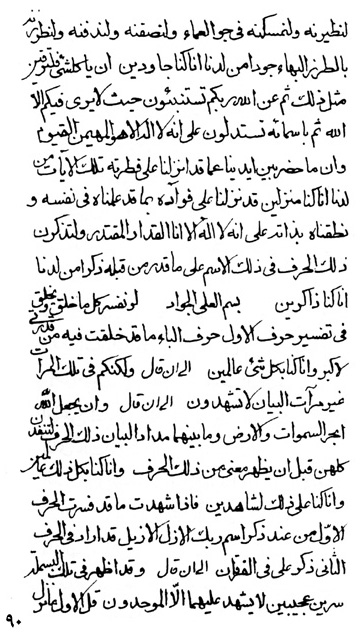 لنطيرنه ولنمسكنه في جو العماء ولنصفقنه ولندفنه ولنطرزنه
بالطرز البهاء جودا من لدنا انا كنا جاودين ان يا كلشئ فلتوقنن
مثل ذلك ثم عن الله ربكم تستنبئون حيث لا يرى فيكم الا
الله ثم باسمائه تستدلون على انه لا اله الا هو المهيمن القيوم
وان ما حضر بين ايدينا عما قد انزلنا على فطرته تلك الايات من
لدنا انا كنا منزلين قد نزلنا على فوآده بما قد علمناه في نفسه و
نطقناه بذاته على انه لا اله الا انا القداد المقتدر ولتذكرون
ذلك الحرف في ذلك الاسم على ما قدر من قبله ذكرا من لدنا
انا كنا ذاكرين بسم العلى الجواد لو نفسر كل ما خلق ويخلق
في تفسير حرف الاول حرف الباء ما قد خلقت فيه من قدرتي
لاكبر وانا كنا بكل شئ عالمين الى ان قال ولكنكم في تلك المرآت
غير مرآت البيان لا تشهدون الى ان قال وان يجعل الله
ابحر السموات والارض وما بينهما مداد البيان ذلك الحرف لتنفدن
كلهن قبل ان يظهر معنى من ذلك الحرف وانا كنا بكل ذلك عالمين
وانا كنا على ذلك لشاهدين فاذا شهدت ما قد فسرت الحرف
الاول من عند ذكر اسم ربك الازل الازيل قد اراد في الحرف
الثاني ذكر على في الفرقان الى ان قال وقد اظهر في تلك البسملة
سرين عجيبين لا يشهد عليهما الا الموحدون قل الاول ما نزل
٩٠